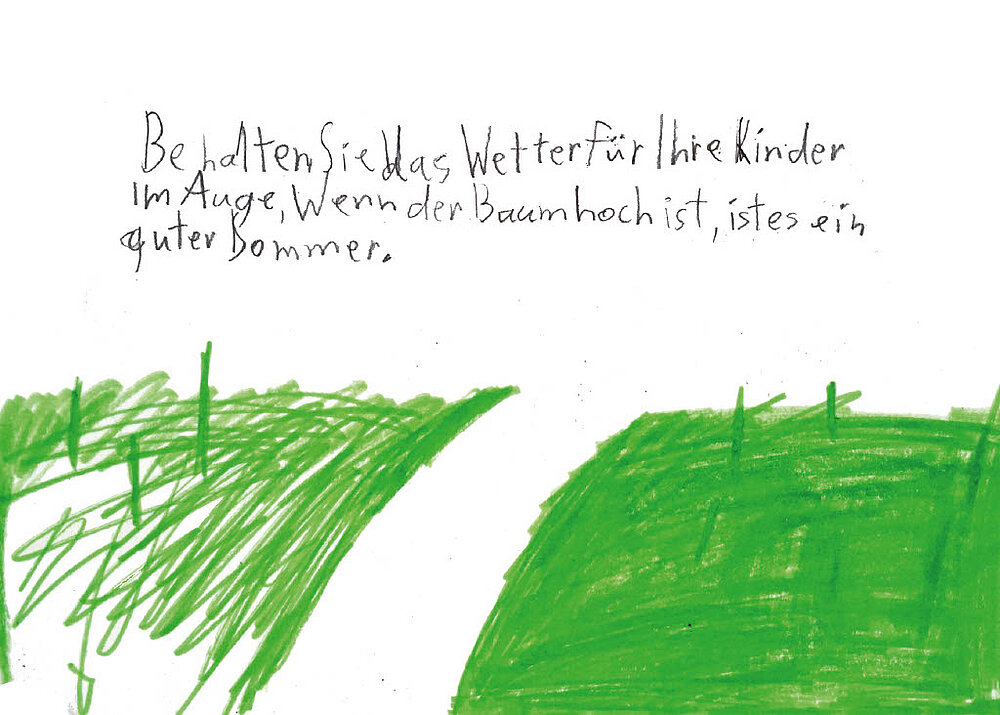 Behalten Sie das Wetter für Ihre Kinder
im Auge, Wenn der Baum hoch ist, ist es ein
guter Bommer.